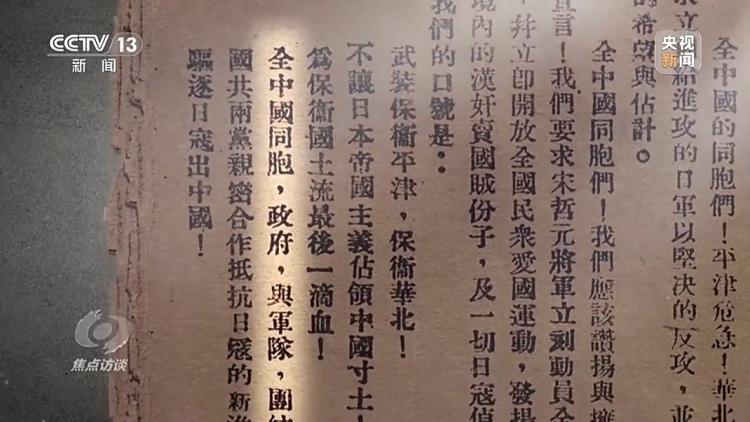 CCTV 13
新闻
央视
新闻
全中國的同胞們！平津危急！華北
給進攻的日軍以堅決的反攻，並
的希望與估計。
全中國同胞們！我們應該讚揚與擁
宣言！我們要求宋哲元將軍立刻動員全
，幷立即開放全國民衆愛國運動，發揚
境內的漢奸賣國賊份子，及一切日寇偵
我們的口號是：
武裝保衞平津，保衞華北！
不讓日本帝國主義佔領中國寸土！
爲保衞國土流最後一滴血！
全中國同胞，政府，與軍隊，團結
國共兩黨親密合作抵抗日寇的新進
驅逐日寇出中國！
焦点访谈